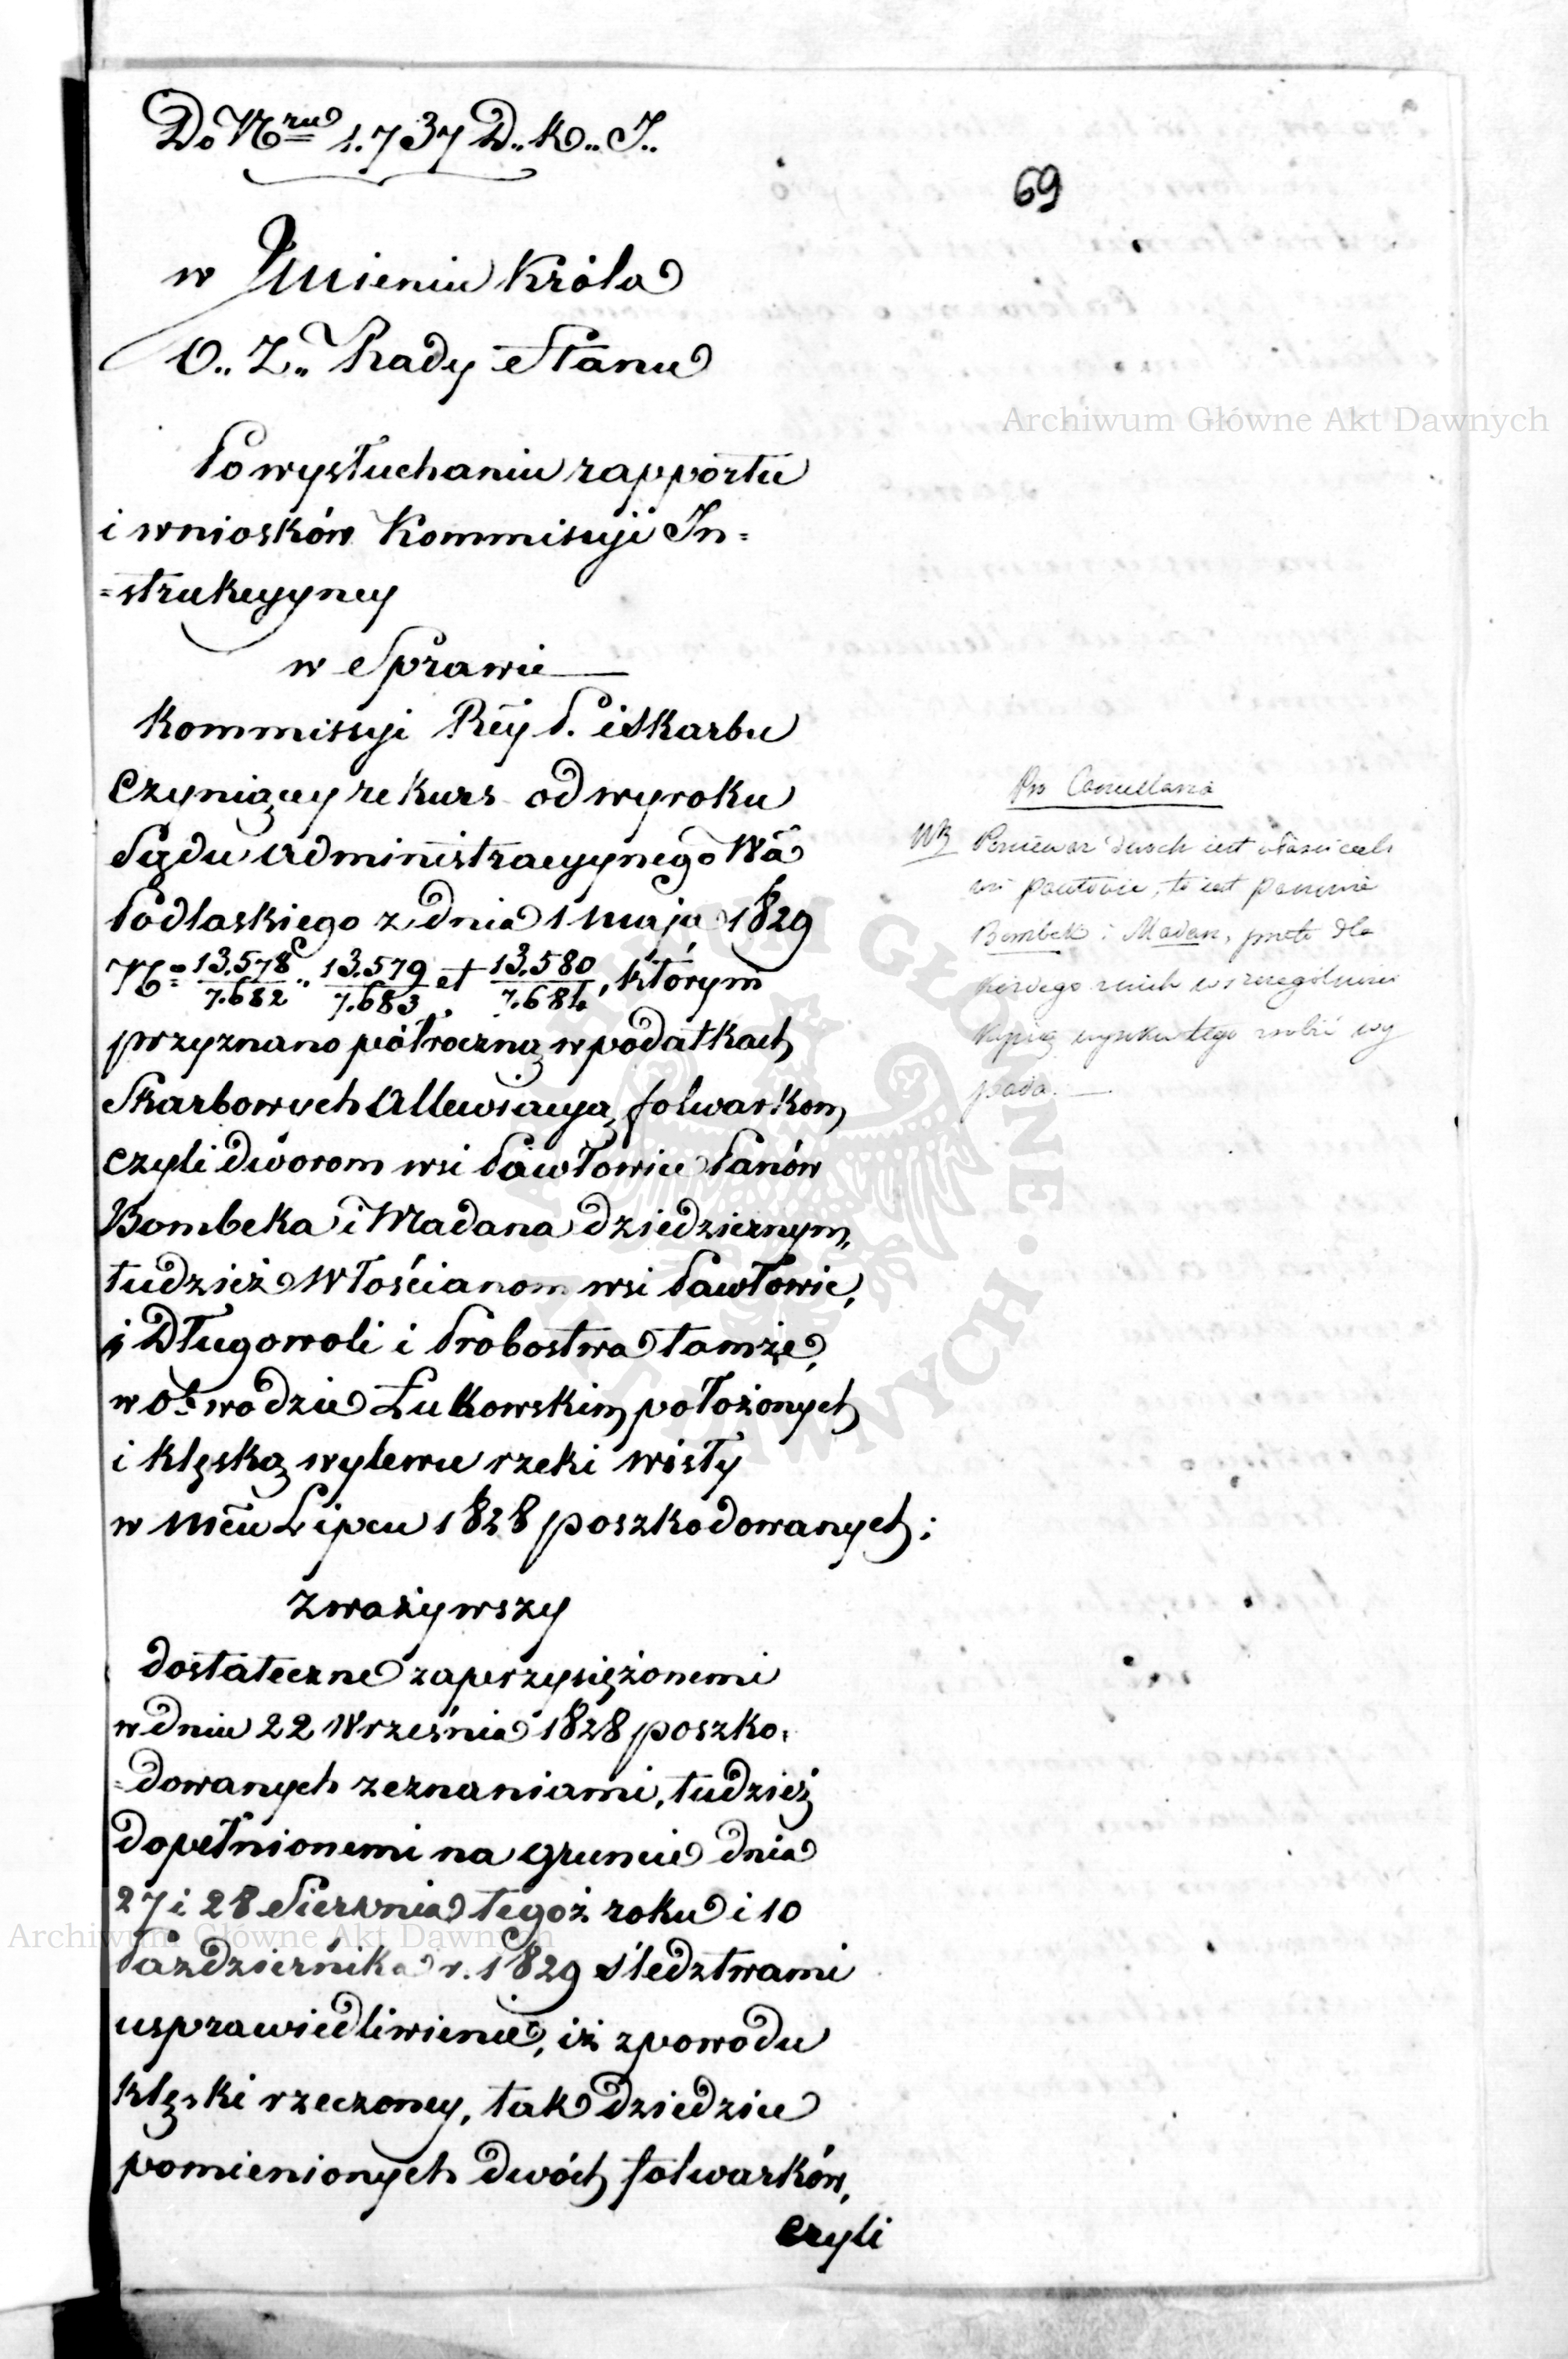 Do Nru 1.737 D.. K.. J..
69
w Imieniu Króla
O.. Z.. Rady Stanu
Po wysłuchaniu rapportu
i wniosków Kommissyi In=
=strukcyyney
w Sprawie
Kommissyi Rẽy P. i Skarbu
czyniącey rekurs od wyroku
Sądu Administracyynego Wa
Podlaskiego z dnia 1 Maja 1829
No 13.578/7.682.. 13.579/7.683 et 13.580/7.684, którym
przyznano półroczną w podatkach
Skarbowych Allewiacyą folwarkom
czyli dworom wsi Pawłowic Panów
Bombeka i Madana dziedzicznym,
tudzież Włościanom wsi Pawłowic,
i Długowoli i Probostwa tamże,
w Obwodzie Łukowskim położonych
i klęską wylewu rzeki Wisły
w Mcu Lipcu 1828 poszkodowanych;
Zważywszy
dostateczne zaprzysiężonemi
w dniu 22 Września 1828 poszko=
=dowanych zeznaniami, tudzież
dopełnionemi na gruncie dnia
27 i 28 Sierpnia tegoż roku i 10
Października r. 1829 śledztwami
usprawiedliwienie, iż z powodu
klęski rzeczoney, tak dziedzice
pomienionych dwóch folwarków,
czyli
Pro Cancellaria
NB Ponieważ dwóch jest właścicieli
wsi Pawłowic, to iest Panowie
Bombek i Madan, przeto dla
każdego z nich w szczególności
kopią wyroku tego zrobić wy
pada.
Archiwum Główne Akt Dawnych
Archiwum Główne Akt Dawnych